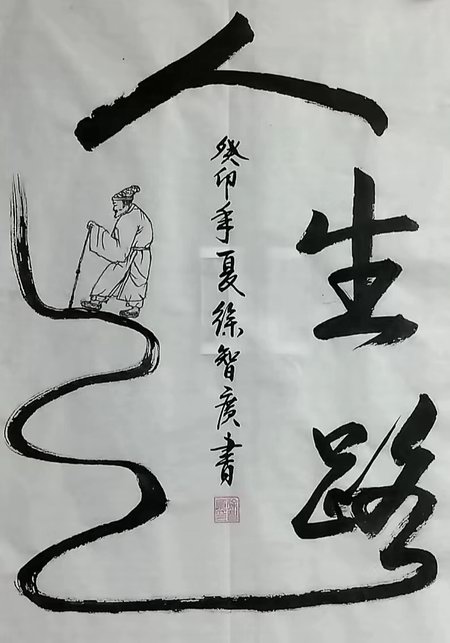 人生路
癸卯年夏徐智廣書